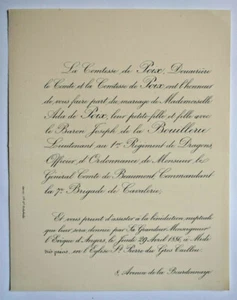 La Comtesse de Poix, Douairière
le Comte et la Comtesse de Poix ont l'honneur
de vous faire part du mariage de Mademoiselle
Ada de Poix, leur petite-fille et fille avec
le Baron Joseph de la Bouillerie
Lieutenant au 1er Régiment de Dragons,
Officier d'Ordonnance de Monsieur le
Général Comte de Beaumont Commandant
la 7e Brigade de Cavalerie,
Et vous prient d'assister à la bénédiction nuptiale
qui leur sera donnée par Sa Grandeur Monseigneur
l'Evêque d'Angers, le Jeudi 29 Avril 1886, à Midi
très précis, en l'Eglise St Pierre du Gros Caillou.
8, Avenue de la Bourdonnaye